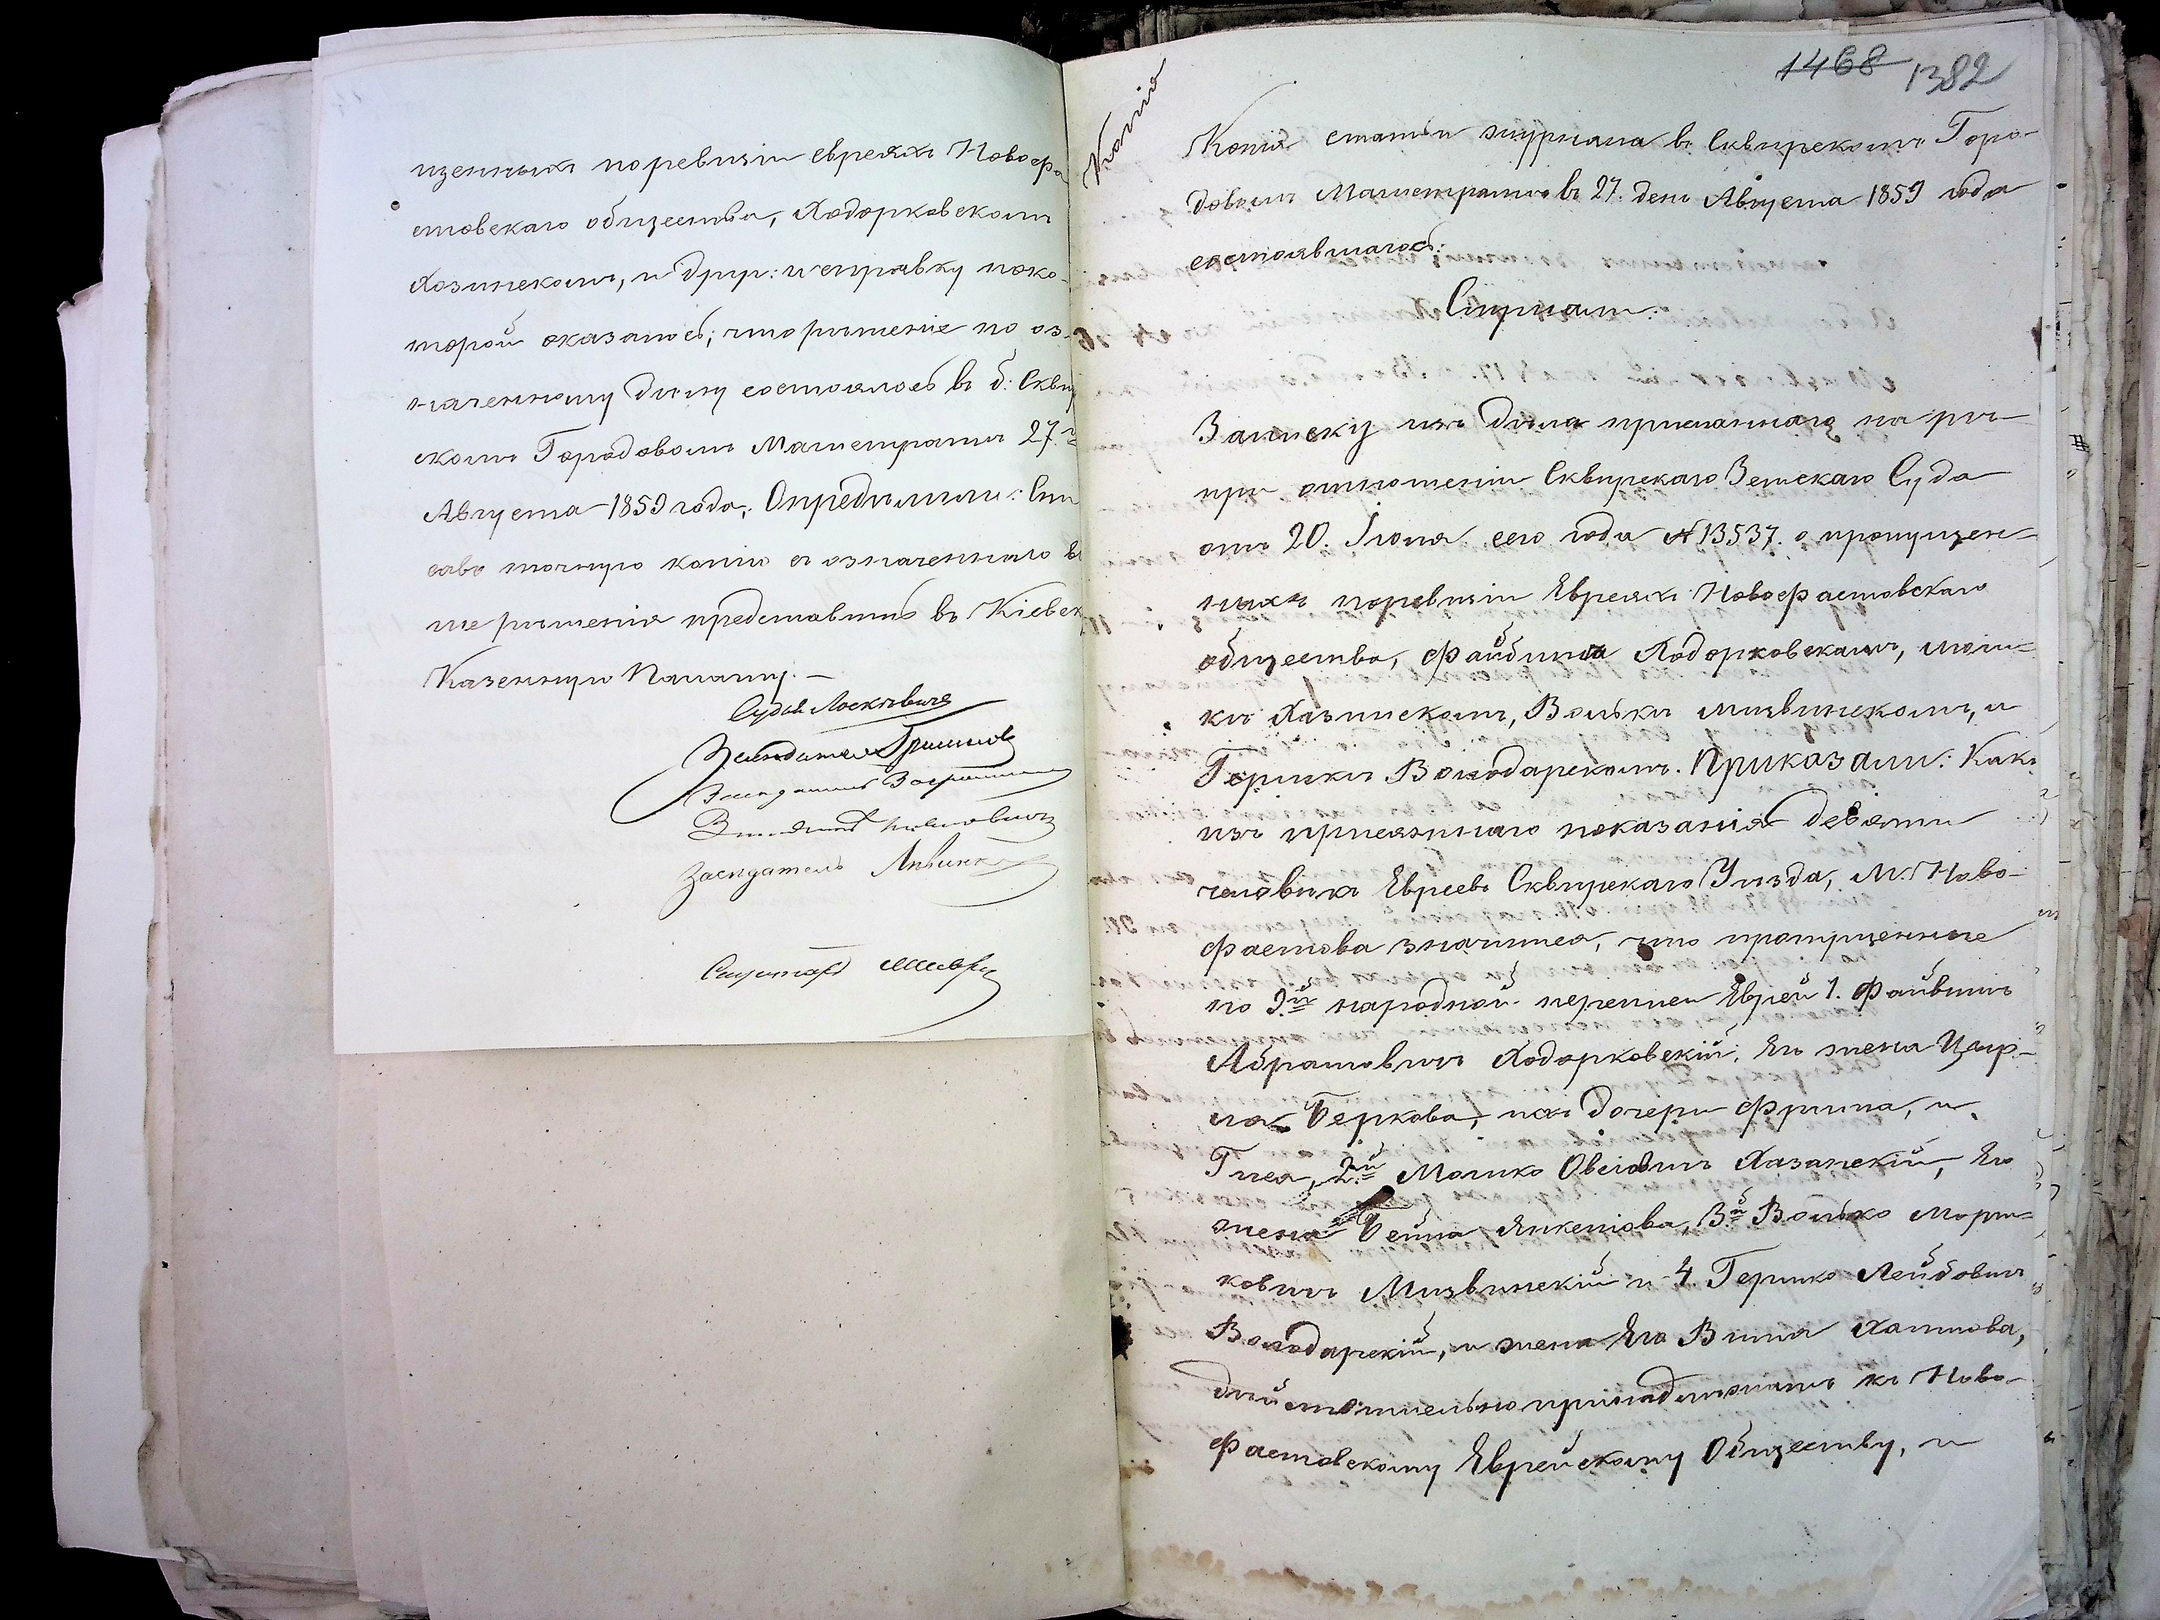 щенныхъ поревизіи евреяхъ Новофа
стовскаго общества, Ходорковскомъ
Хозинскомъ, и друг: и справку поко-
торой оказалось; что рѣшеніе по оз-
наченному дѣлу состоялось въ б: Сквир
скомъ Городовомъ Магистратѣ 27.го
Августа 1859 года; Опредѣлили: Спи
савъ точную копію съ означеннаго вы
ше рѣшенія представить въ Кіевск
Казенную Палату. —
Судья
Засѣдатель
Засѣдатель
Засѣдатель
Секретарь
1468 1382
Копія
Копія статьи журнала въ Сквирскомъ Горо-
довомъ Магистратѣ въ 27. день Августа 1859 года
состоявшагось:
Слушали:
Записку изъ дѣла присланнаго на рѣ-
при отношеніи Сквирскаго Земскаго Суда
отъ 20. Іюня сего года № 13537. о пропущен-
ныхъ поревизіи Евреяхъ Новофастовскаго
общества, Файбиша Ходорковскомъ, Мош-
кѣ Хазинскомъ, Волькѣ Мизвинскомъ, и
Гершкѣ Володарскомъ. Приказали: Какъ
изъ присяжнаго показанія девяти
человѣкъ Евреевъ Сквирскаго Уѣзда, М. Ново-
фастова значится, что пропущенные
по 9й народной переписи Еврей 1. Файвишъ
Абрамовичъ Ходорковскій, Его жена Цыр-
ля Беркова, ихъ дочери Фрима, и
Гнея, 2й Мошко Овсіовичъ Хазанскій, Его
жена Бейла Янкеліова, 3й Волько Морт-
ковичъ Мизвинскій и 4 Гершко Лейбовичъ
Володарскій, и жена Его Хаимова,
дѣйствительно принадлежатъ къ Ново-
фастовскому Еврейскому Обществу, и